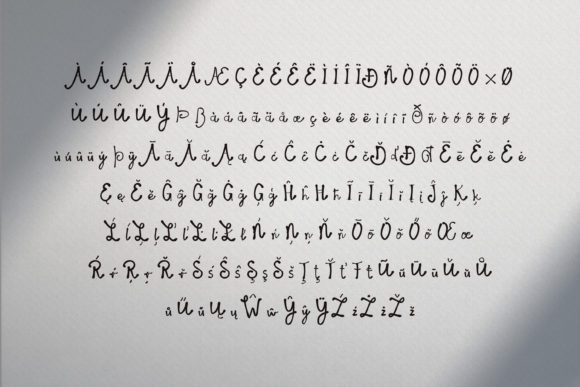 À Á Â Ã Ä Å Æ Ç È É Ê Ë Ì Í Î Ï Ð Ñ Ò Ó Ô Õ Ö × Ø
Ù Ú Û Ü Ý Þ ß à á â ã ä å æ ç è é ê ë ì í î ï ð ñ ò ó ô õ ö ø
ù ú û ü ý þ ÿ Ā ā Ă ă Ą ą Ć ć Ĉ ĉ Ċ ċ Č č Ď ď Đ đ Ē ē Ĕ ĕ Ė ė
Ę ę Ě ě Ĝ ĝ Ğ ğ Ġ ġ Ģ ģ Ĥ ĥ Ħ ħ Ĩ ĩ Ī ī Ĭ ĭ Į į Ĵ ĵ Ķ ķ
Ĺ ĺ Ļ ļ Ľ ľ Ŀ ŀ Ł ł Ń ń Ņ ņ Ň ň Ō ō Ŏ ŏ Ő ő Œ œ
Ŕ ŕ Ŗ ŗ Ř ř Ś ś Ŝ ŝ Ş ş Š š Ţ ţ Ť ť Ŧ ŧ Ũ ũ Ū ū Ŭ ŭ Ů
ů Ű ű Ų ų Ŵ ŵ Ŷ ŷ Ÿ Ź ź Ż ż Ž ž